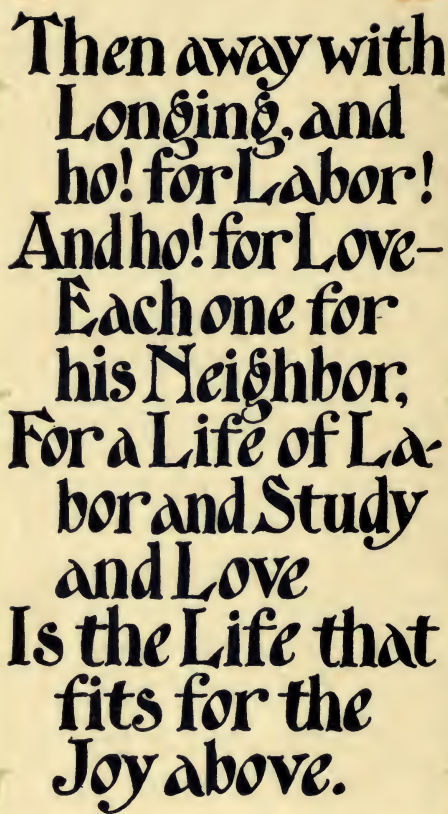 Then away with
Longing, and
ho! for Labor!
And ho! for Love–
Each one for
his Neighbor,
For a Life of La-
bor and Study
and Love
Is the Life that
fits for the
Joy above.